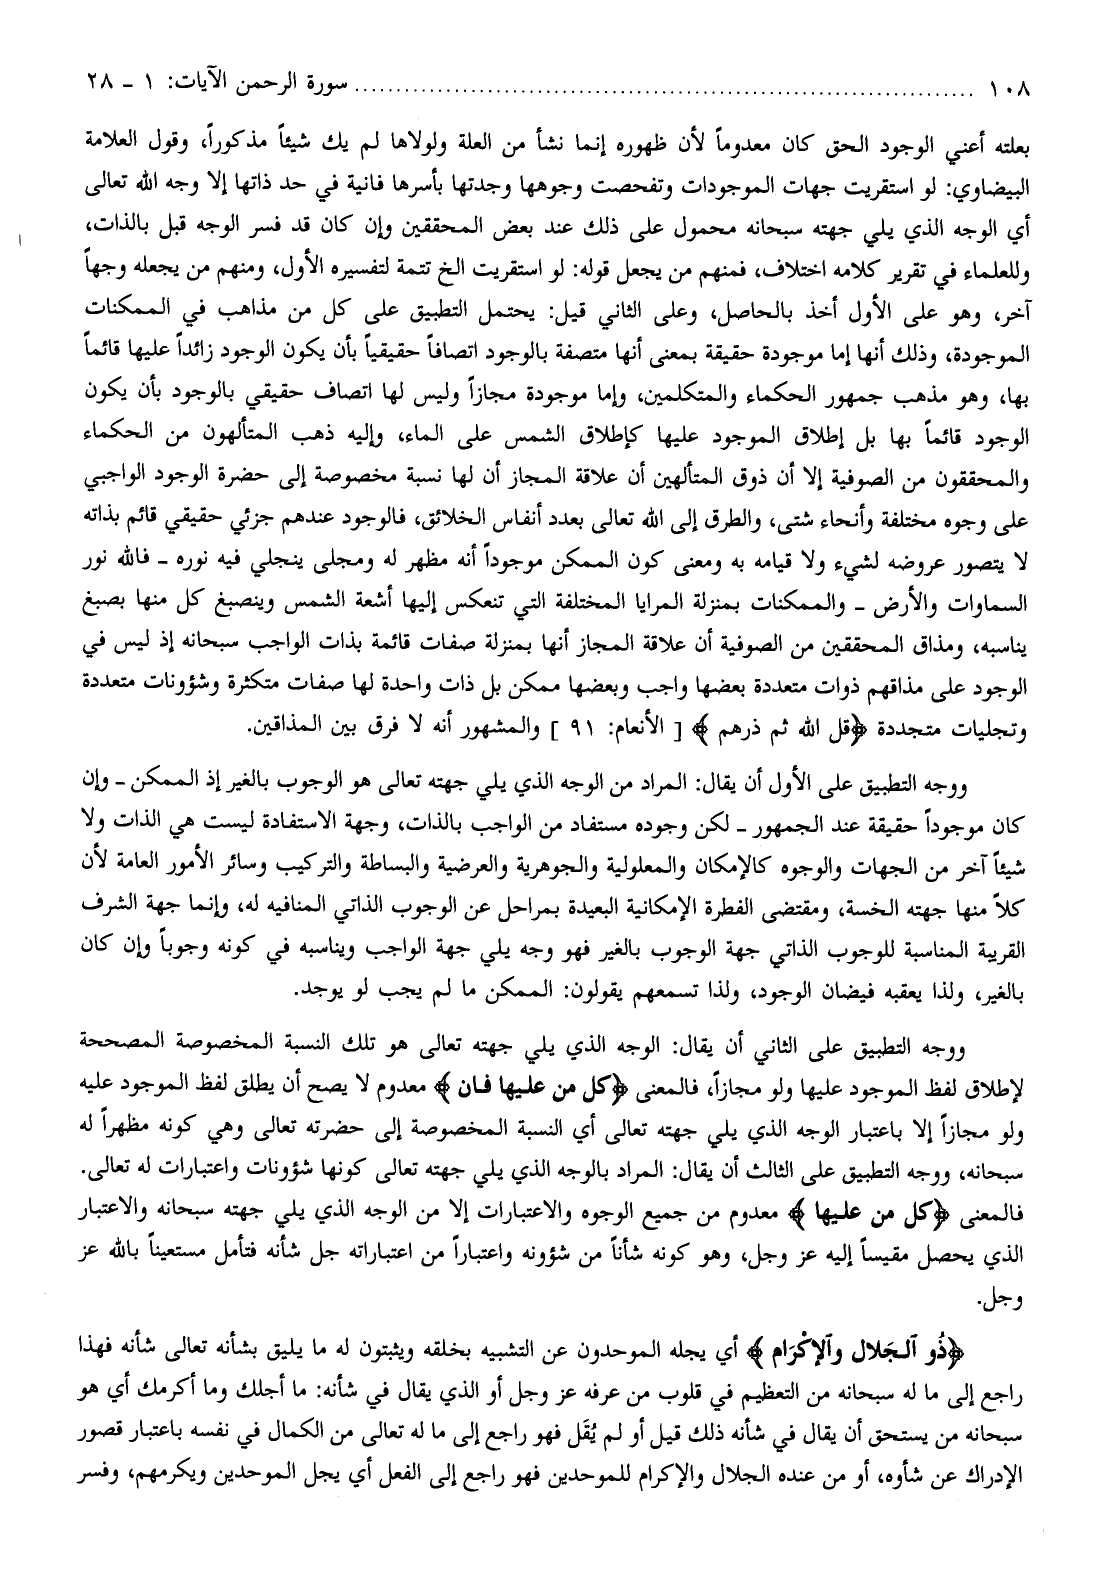 ١٠٨ ........................................................................ سورة الرحمن الآيات: ١ - ٢٨
بعلته أعني الوجود الحق كان معدوماً لأن ظهوره إنما نشأ من العلة ولولاها لم يك شيئاً مذكوراً، وقول العلامة
البيضاوي: لو استقريت جهات الموجودات وتفحصت وجوهها وجدتها بأسرها فانية في حد ذاتها إلا وجه الله تعالى
أي الوجه الذي يلي جهته سبحانه محمول على ذلك عند بعض المحققين وإن كان قد فسر الوجه قبل بالذات،
وللعلماء في تقرير كلامه اختلاف، فمنهم من يجعل قوله: لو استقريت الخ تتمة لتفسيره الأول، ومنهم من يجعله وجهاً
آخر، وهو على الأول أخذ بالحاصل، وعلى الثاني قيل: يحتمل التطبيق على كل من مذاهب في الممكنات
الموجودة، وذلك أنها إما موجودة حقيقة بمعنى أنها متصفة بالوجود اتصافاً حقيقياً بأن يكون الوجود زائداً عليها قائماً
بها، وهو مذهب جمهور الحكماء والمتكلمين، وإما موجودة مجازاً وليس لها اتصاف حقيقي بالوجود بأن يكون
الوجود قائماً بها بل إطلاق الموجود عليها كإطلاق الشمس على الماء، وإليه ذهب المتألهون من الحكماء
والمحققون من الصوفية إلا أن ذوق المتألهين أن علاقة المجاز أن لها نسبة مخصوصة إلى حضرة الوجود الواجبي
على وجوه مختلفة وأنحاء شتى، والطرق إلى الله تعالى بعدد أنفاس الخلائق، فالوجود عندهم جزئي حقيقي قائم بذاته
لا يتصور عروضه لشيء ولا قيامه به ومعنى كون الممكن موجوداً أنه مظهر له ومجلى ينجلي فيه نوره - فالله نور
السماوات والأرض - والممكنات بمنزلة المرايا المختلفة التي تنعكس إليها أشعة الشمس وينصبغ كل منها بصبغ
يناسبه، ومذاق المحققين من الصوفية أن علاقة المجاز أنها بمنزلة صفات قائمة بذات الواجب سبحانه إذ ليس في
الوجود على مذاقهم ذوات متعددة بعضها واجب وبعضها ممكن بل ذات واحدة لها صفات متكثرة وشؤونات متعددة
وتجليات متجددة ﴿قل الله ثم ذرهم ﴾ [ الأنعام: ٩١ ] والمشهور أنه لا فرق بين المذاقين.
ووجه التطبيق على الأول أن يقال: المراد من الوجه الذي يلي جهته تعالى هو الوجوب بالغير إذ الممكن - وإن
كان موجوداً حقيقة عند الجمهور - لكن وجوده مستفاد من الواجب بالذات، وجهة الاستفادة ليست هي الذات ولا
شيئاً آخر من الجهات والوجوه كالإمكان والمعلولية والجوهرية والعرضية والبساطة والتركيب وسائر الأمور العامة لأن
كلاً منها جهته الخسة، ومقتضى الفطرة الإمكانية البعيدة بمراحل عن الوجوب الذاتي المنافيه له، وإنما جهة الشرف
القريبة المناسبة للوجوب الذاتي جهة الوجوب بالغير فهو وجه يلي جهة الواجب ويناسبه في كونه وجوباً وإن كان
بالغير، ولذا يعقبه فيضان الوجود، ولذا تسمعهم يقولون: الممكن ما لم يجب لو يوجد.
ووجه التطبيق على الثاني أن يقال: الوجه الذي يلي جهته تعالى هو تلك النسبة المخصوصة المصححة
لإطلاق لفظ الموجود عليها ولو مجازاً، فالمعنى ﴿كل من عليها فـان ﴾ معدوم لا يصح أن يطلق لفظ الموجود عليه
ولو مجازاً إلا باعتبار الوجه الذي يلي جهته تعالى أي النسبة المخصوصة إلى حضرته تعالى وهي كونه مظهراً له
سبحانه، ووجه التطبيق على الثالث أن يقال: المراد بالوجه الذي يلي جهته تعالى كونها شؤونات واعتبارات له تعالى.
فالمعنى ﴿كل من عليها ﴾ معدوم من جميع الوجوه والاعتبارات إلا من الوجه الذي يلي جهته سبحانه والاعتبار
الذي يحصل مقيساً إليه عز وجل، وهو كونه شأناً من شؤونه واعتباراً من اعتباراته جل شأنه فتأمل مستعيناً بالله عز
وجل.
﴿ذُو ٱلـجَلال وٱلإكْرَام ﴾ أي يجله الموحدون عن التشبيه بخلقه ويثبتون له ما يليق بشأنه تعالى شأنه فهذا
راجع إلى ما له سبحانه من التعظيم في قلوب من عرفه عز وجل أو الذي يقال في شأنه: ما أجلك وما أكرمك أي هو
سبحانه من يستحق أن يقال في شأنه ذلك قيل أو لم يُقَل فهو راجع إلى ما له تعالى من الكمال في نفسه باعتبار قصور
الإدراك عن شأوه، أو من عنده الجلال والإكرام للموحدين فهو راجع إلى الفعل أي يجل الموحدين ويكرمهم، وفسر